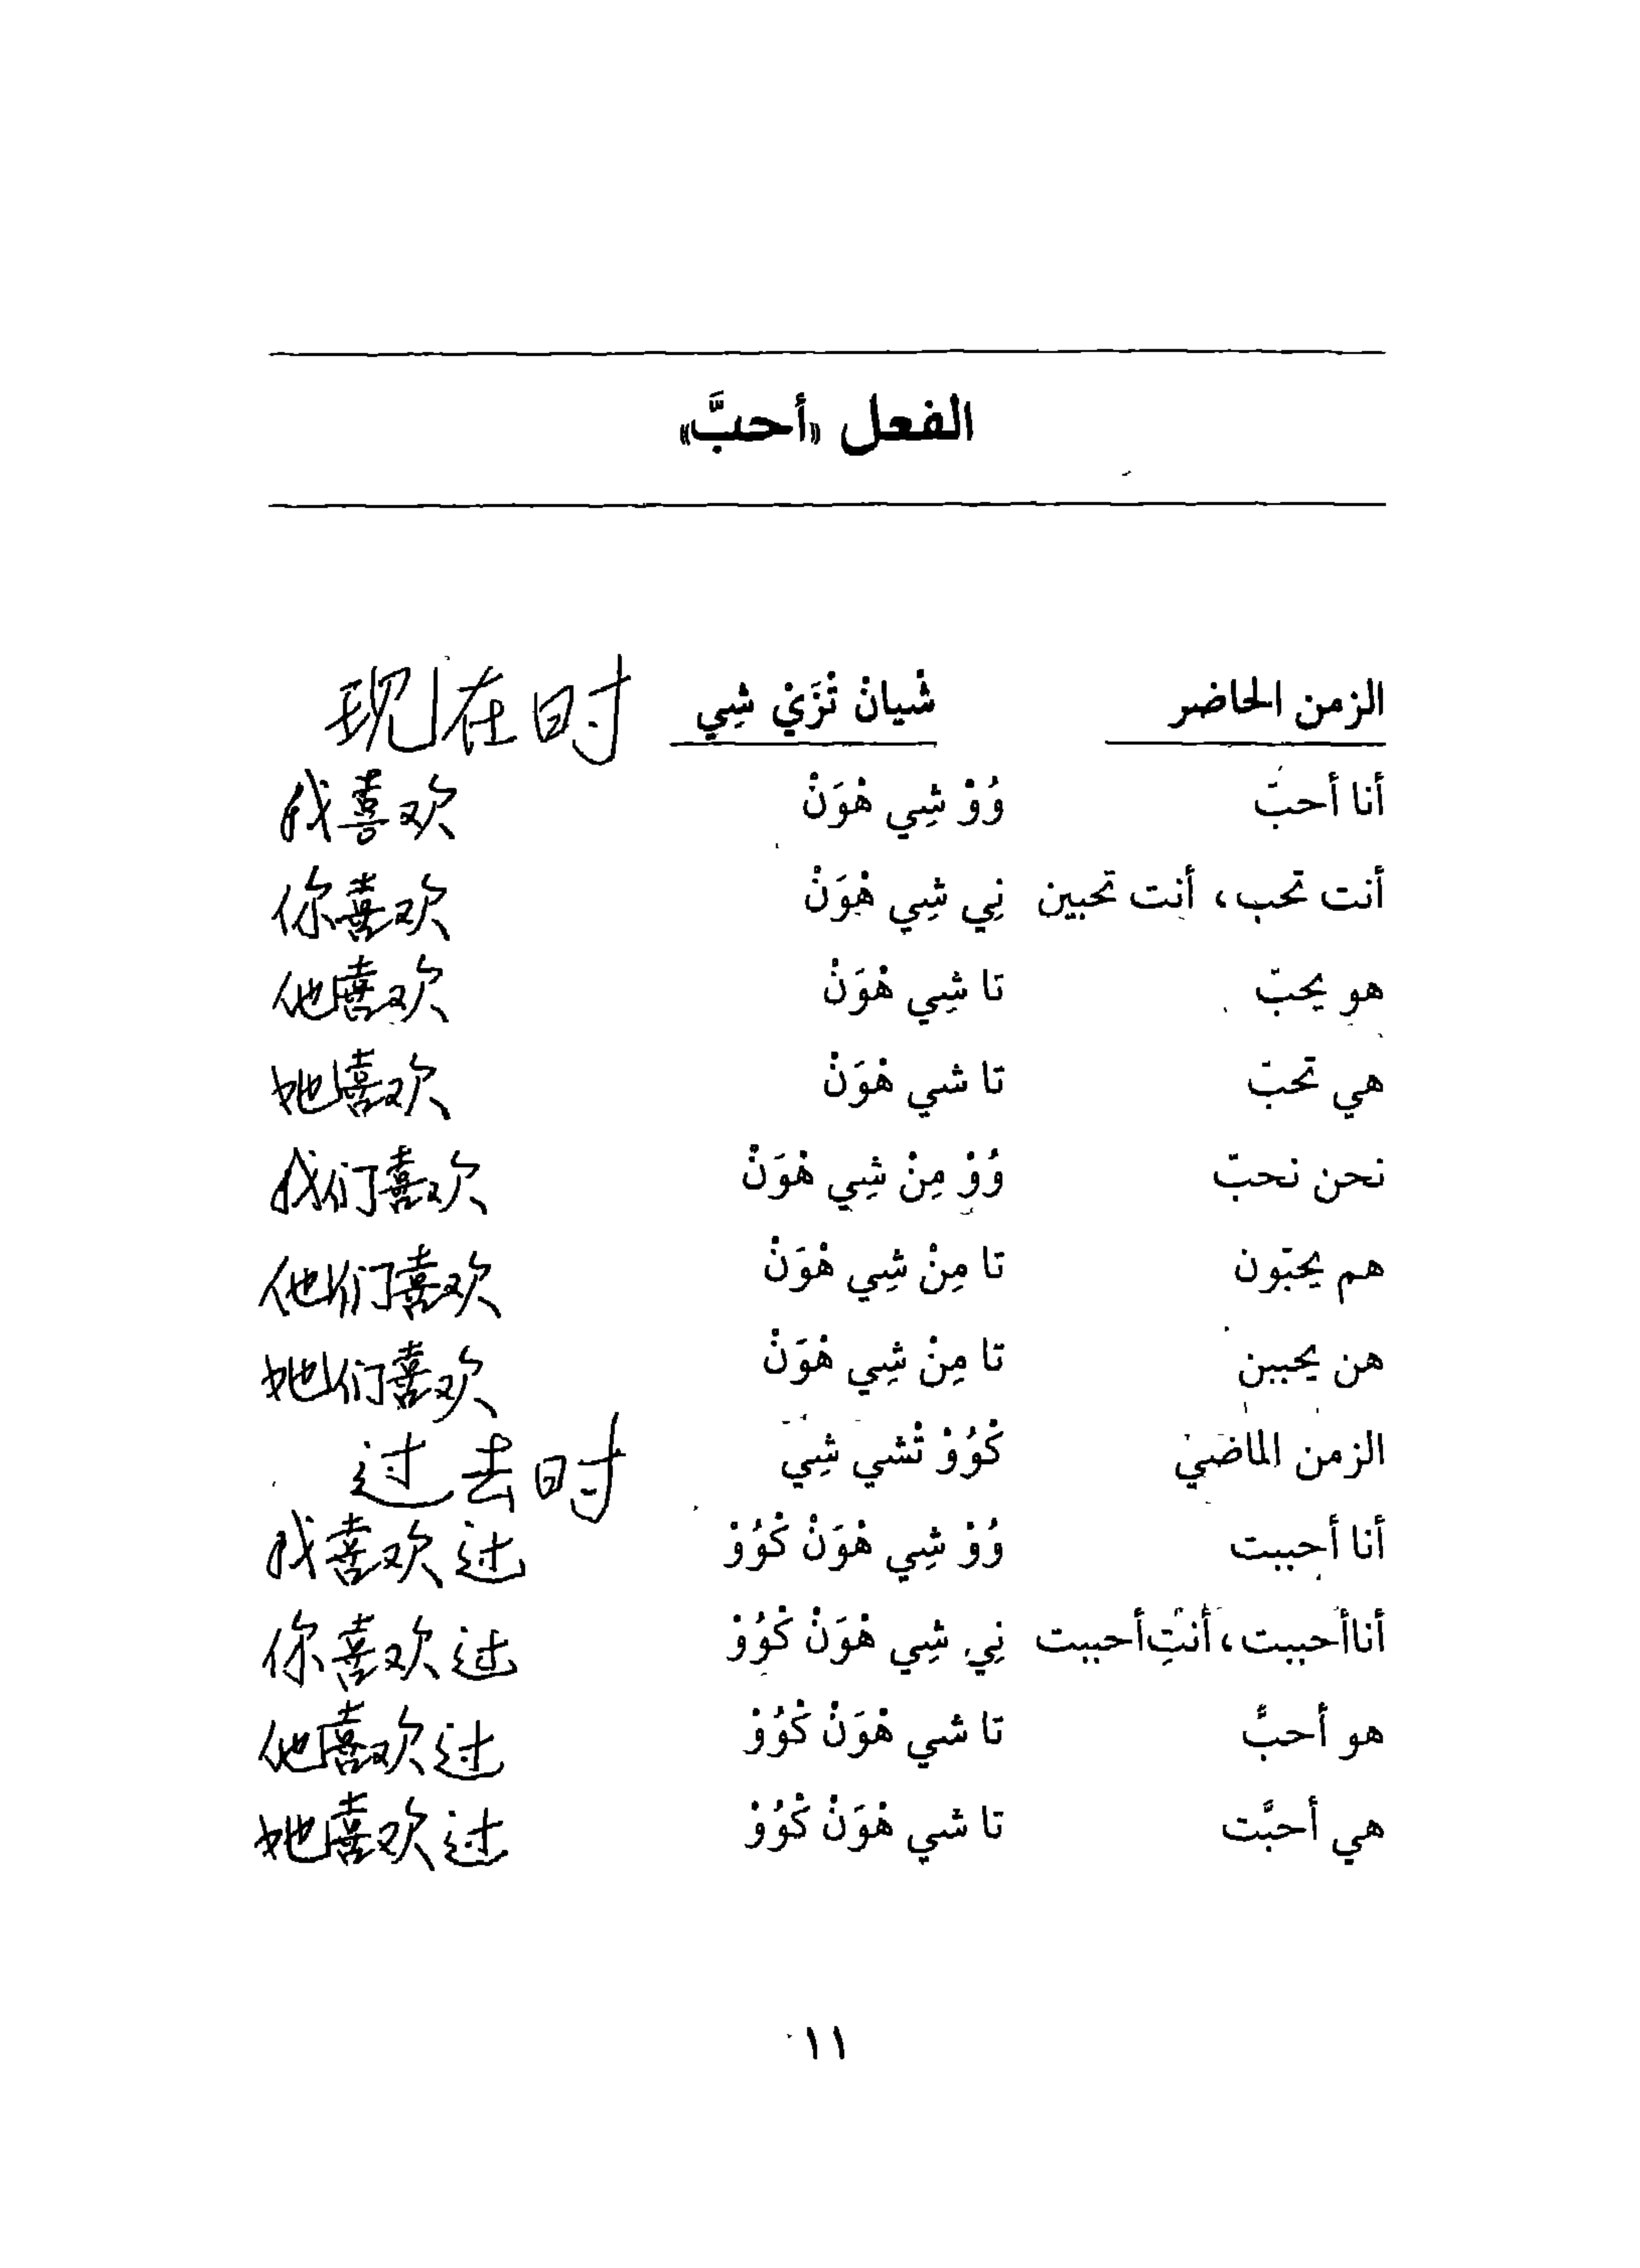 الفعل «أحبَّ»
الزمن الحاضر شْيانْ تْزَيْ شِي 现在时
أنا أحبّ وُوْ شِي هْوَنْ 我喜欢
أنت تحب، أنت تحبين نِي شِي هْوَنْ 你喜欢
هو يحبّ تا شِي هْوَنْ 他喜欢
هي تحبّ تا شي هْوَنْ 她喜欢
نحن نحبّ وُوْ مِنْ شِي هْوَنْ 我们喜欢
هم يحبّون تا مِنْ شِي هْوَنْ 他们喜欢
هن يحببن تا مِنْ شِي هْوَنْ 她们喜欢
الزمن الماضي كْوُوْ تْشي شِي 过去时
أنا أحببت وُوْ شِي هْوَنْ كْوُوْ 我喜欢过
أناأحببت، أنتِ أحببت نِي شِي هْوَنْ كْوُوْ 你喜欢过
هو أحبَّ تا شي هْوَنْ كْوُوْ 他喜欢过
هي أحبَّت تا شي هْوَنْ كْوُوْ 她喜欢过
١١